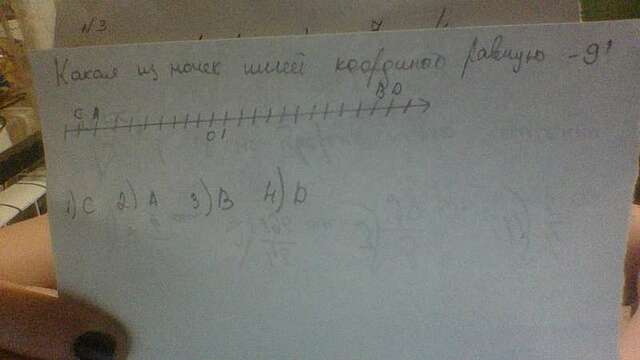 N3
Какая из точек имеет координат равную -9?
C A B D
0 1
1) C 2) A 3) B 4) D